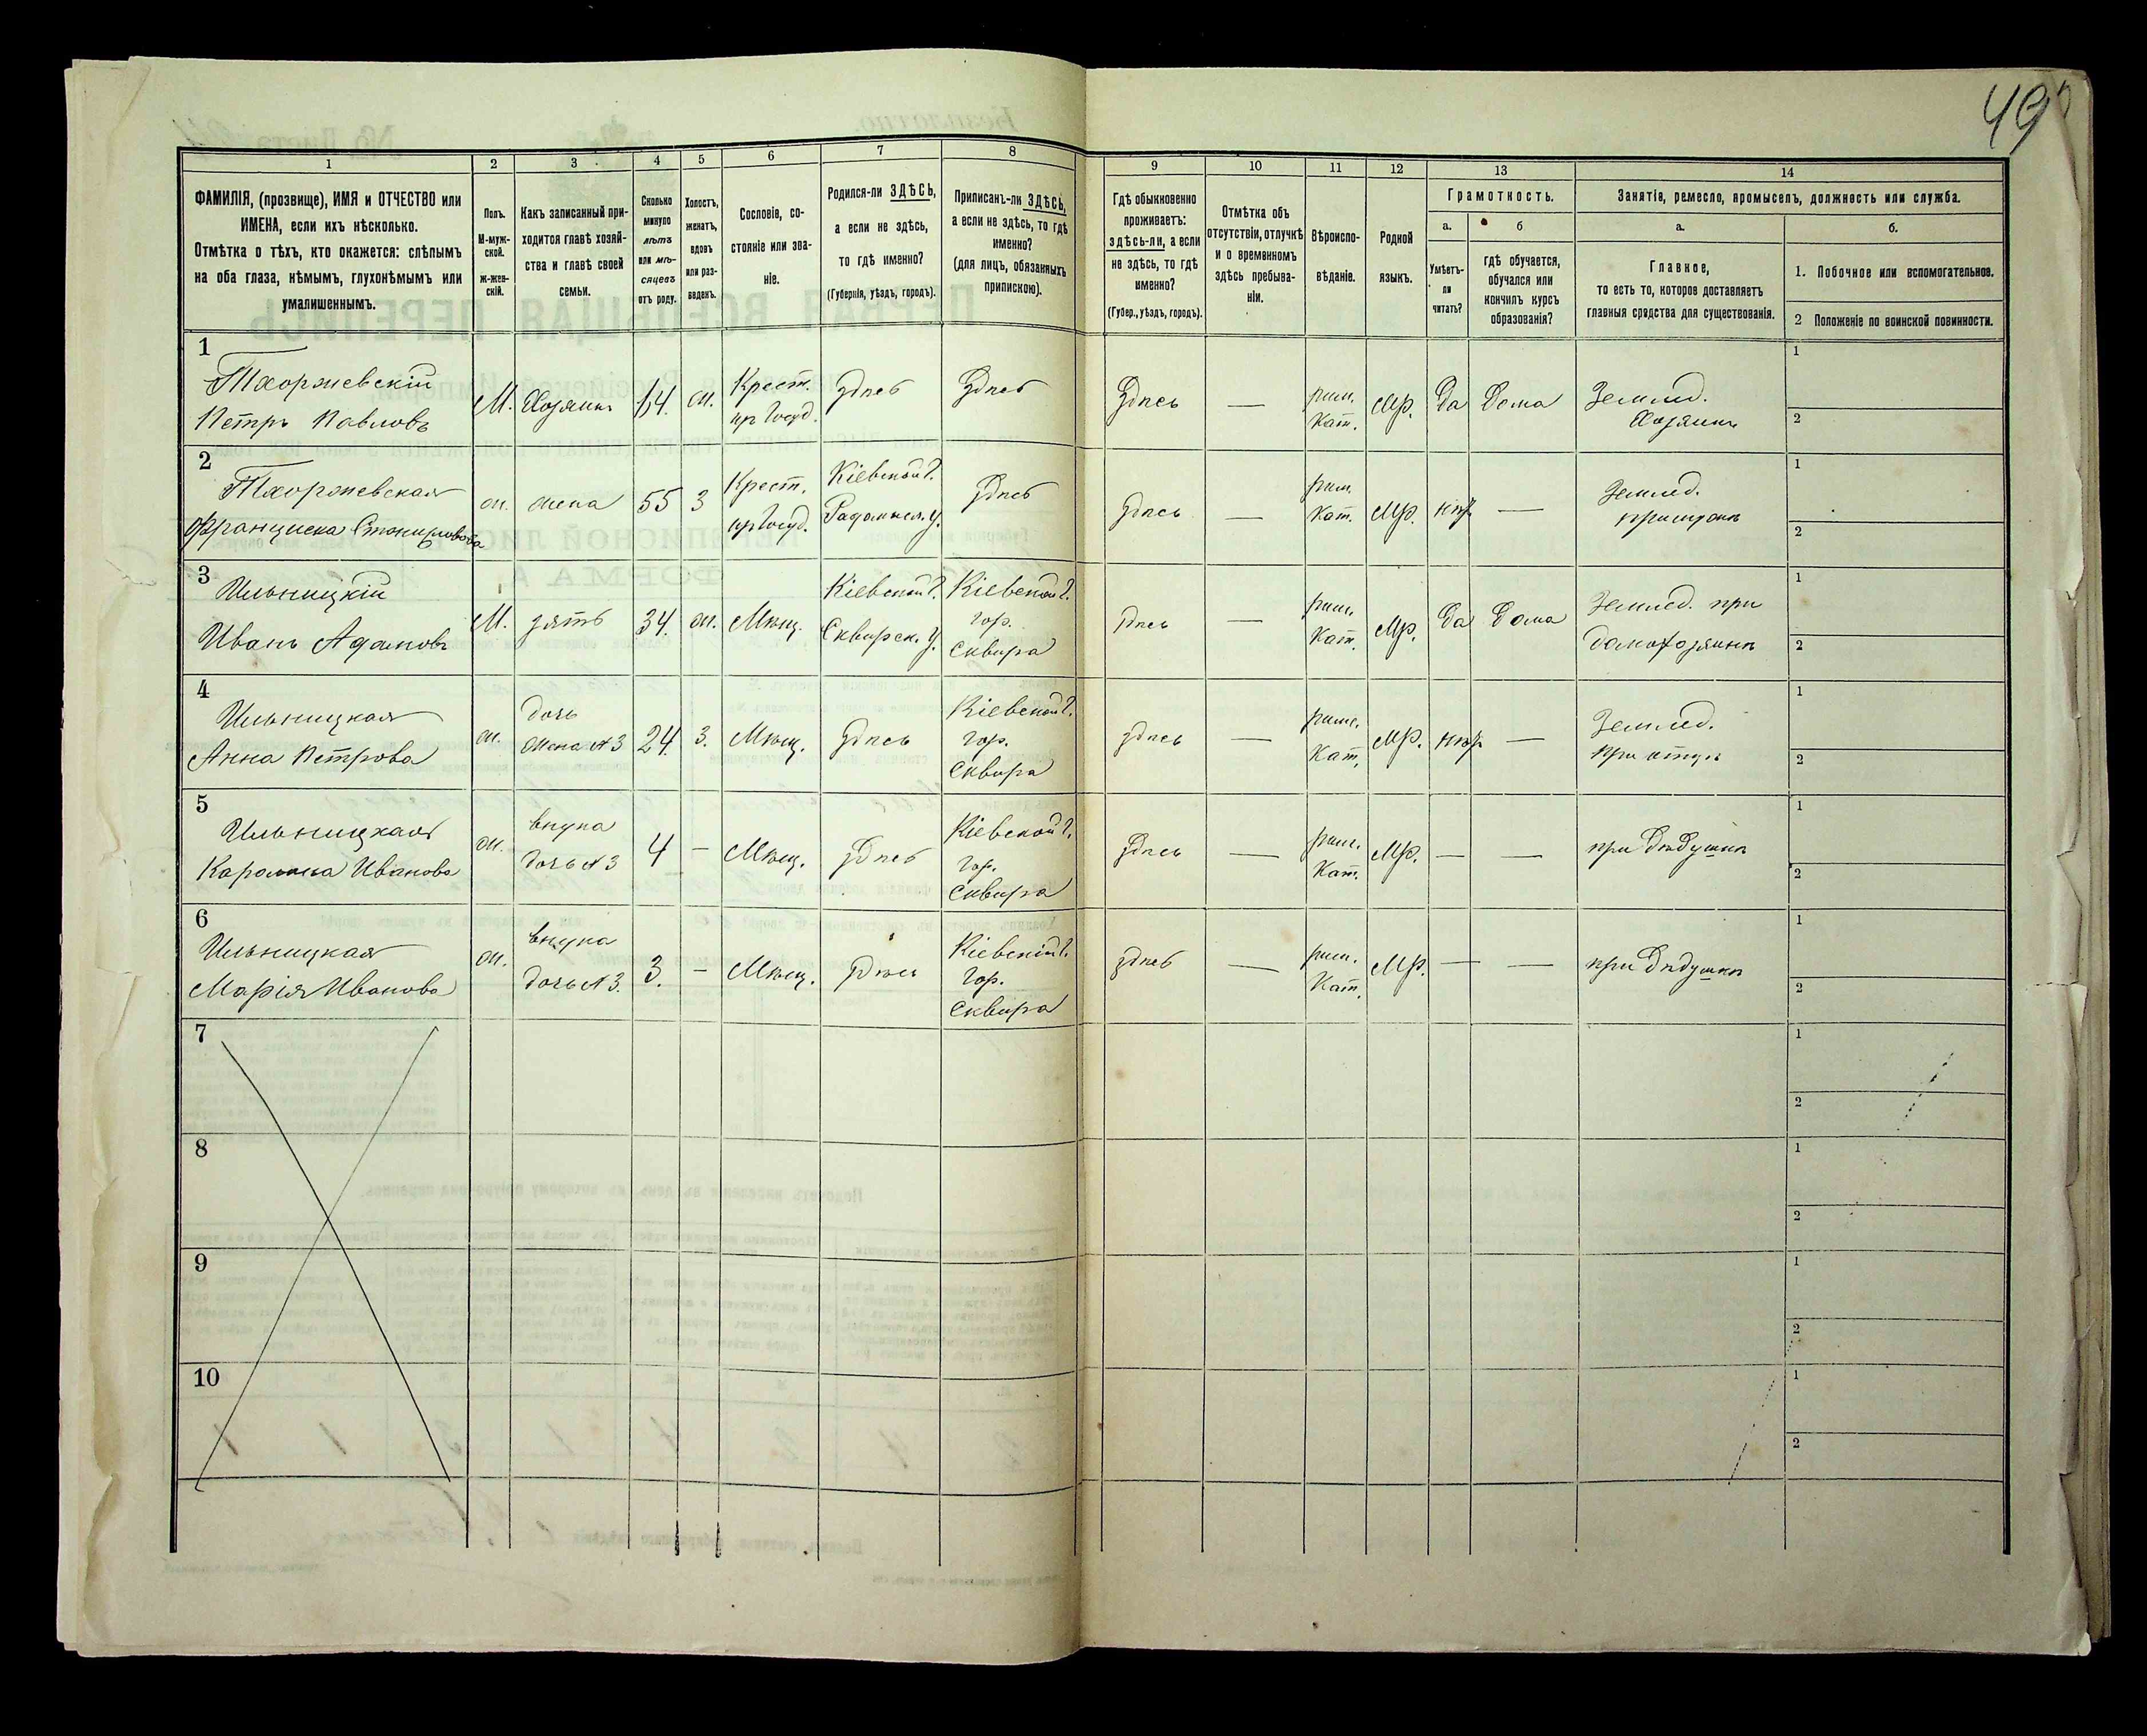 49
1 2 3 4 5 6 7 8 9 10 11 12 13 14
ФАМИЛІЯ, (прозвище), ИМЯ и ОТЧЕСТВО или
ИМЕНА, если ихъ нѣсколько.
Отмѣтка о тѣхъ, кто окажется: слѣпымъ
на оба глаза, нѣмымъ, глухонѣмымъ или
умалишеннымъ.
Полъ.
М-муж-
ской.
ж-жен-
скій.
Какъ записанный при-
ходится главѣ хозяй-
ства и главѣ своей
семьи.
Сколько
минуло
лѣтъ
или мѣ-
сяцевъ
отъ роду.
Холостъ,
женатъ,
вдовъ
или раз-
веденъ.
Сословіе, со-
стояніе или зва-
ніе.
Родился-ли ЗДѢСЬ,
а если не здѣсь,
то гдѣ именно?
(Губернія, уѣздъ, городъ).
Приписанъ-ли ЗДѢСЬ,
а если не здѣсь, то гдѣ
именно?
(для лицъ, обязанныхъ
припискою).
Гдѣ обыкновенно
проживаетъ:
здѣсь-ли, а если
не здѣсь, то гдѣ
именно?
(Губер., уѣздъ, городъ).
Отмѣтка объ
отсутствіи, отлучкѣ
и о временномъ
здѣсь пребыва-
ніи.
Вѣроиспо-
вѣданіе.
Родной
языкъ.
Грамотность.
а.
Умѣетъ-
ли
читать?
б
гдѣ обучается,
обучался или
кончилъ курсъ
образованія?
Занятіе, ремесло, промыселъ, должность или служба.
а.
Главное,
то есть то, которое доставляетъ
главныя средства для существованія.
б.
1. Побочное или вспомогательное.
2 Положеніе по воинской повинности.
1
Тхоржевскій
Петръ Павловъ
М. Хозяинъ 64. ж.
Крест.
пр Госуд.
Здѣсь Здѣсь Здѣсь —
рим.
Кат.
Мр. Да Дома
Землед.
Хозяинъ
1
2
2
Тхоржевская
Франциска
ж. жена 55 З
Крест.
пр Госуд.
Кіевской Г.
Радомысл. у.
Здѣсь здѣсь —
рим.
Кат.
Мр. нѣт —
Землед.
при мужѣ
1
2
3
Ильницкій
Иванъ Адамовъ
М. зять 34. ж. Мѣщ.
Кіевской Г.
Сквирск. у.
Кіевской Г.
гор.
Сквира
здѣсь —
рим.
Кат.
Мр. Да Дома
Землед. при
домохозяинѣ
1
2
4
Ильницкая
Анна Петрова
ж.
дочь
жена №3
24. З. Мѣщ. Здѣсь
Кіевской Г.
гор.
Сквира
здѣсь —
рим.
Кат.
Мр. нѣт —
Землед.
при отцѣ
1
2
5
Ильницкая
Каролина Иванова
ж.
внука
дочь №3
4 — Мѣщ. Здѣсь
Кіевской Г.
гор.
Сквира
Здѣсь —
рим.
Кат.
Мр. — —
при Дѣдушкѣ
1
2
6
Ильницкая
Марія Иванова
ж.
внука
дочь №3.
3. — Мѣщ. здѣсь
Кіевской Г.
гор.
Сквира
здѣсь —
рим.
Кат.
Мр. — —
при Дѣдушкѣ
1
2
7
1
2
8
1
2
9
1
2
10
1
2